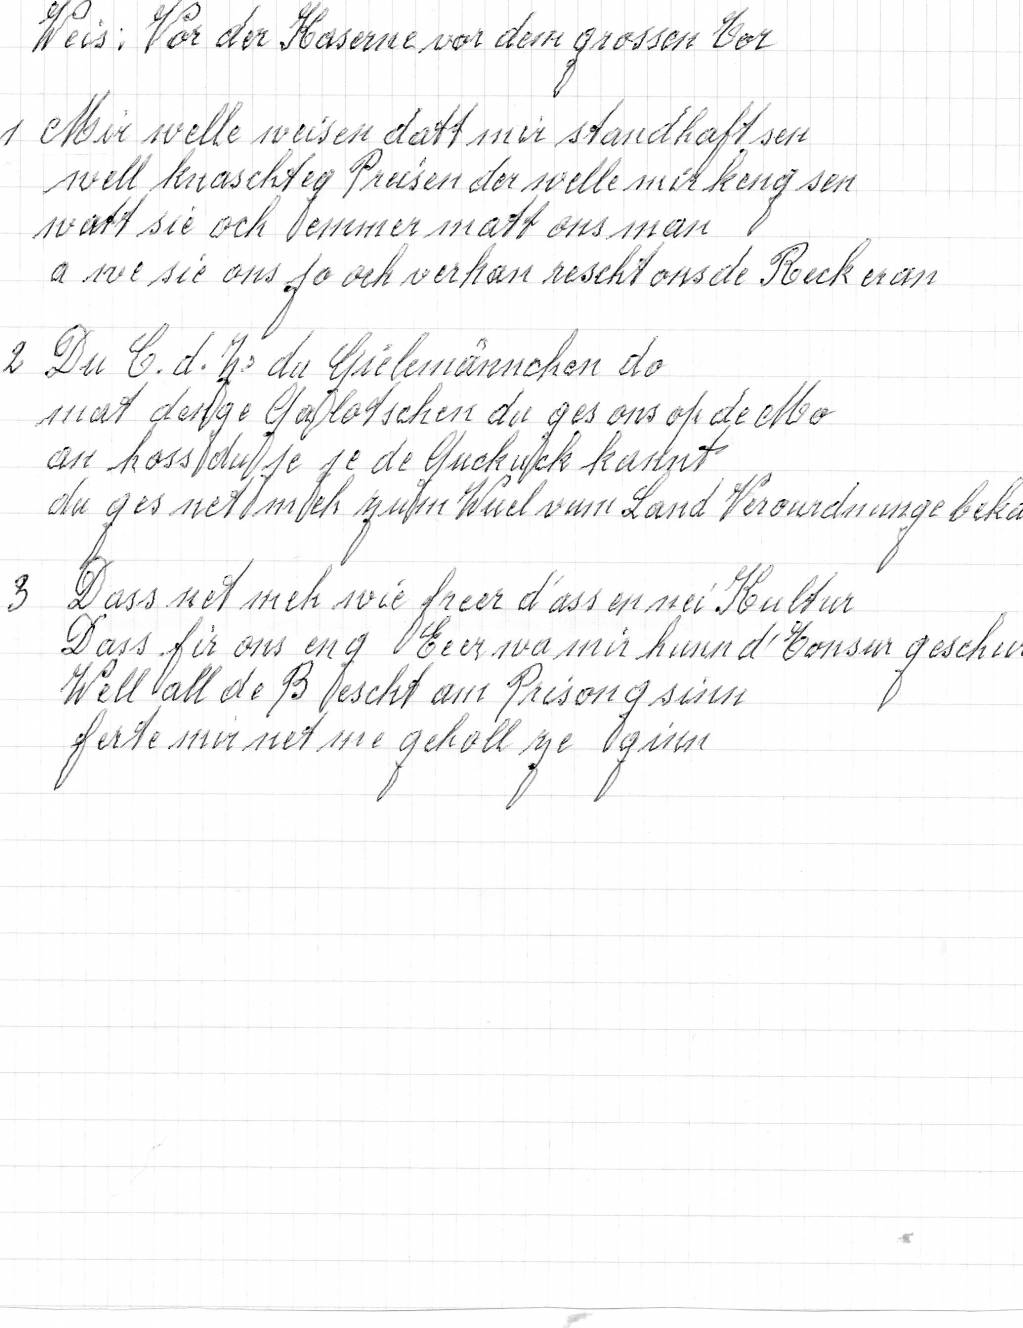 Weis: Vor der Kaserne vor dem grossen Tor
1 Mir welle weisen datt mir standhaft sen
well knaschteg Preisen der welle mir keng sen
watt sie och emmer matt ons man
a we sie ons jo och verhan rescht ons de Reck eran
2 Du C. d. Z. du Gielemännchen do
mat denge Galotschen du ges ons op de Mo
an hoss du je je de Guckuck kannt
du ges net meh zum Wuel vum Land Verourdnunge beka
3 Dass net meh wie freer d'ass en nei Kultur
Dass fir ons eng Eeer wa mir hunn d'Tonsur geschur
Well all de Bescht am Prisong sinn
ferte mir net me geholl ze ginn